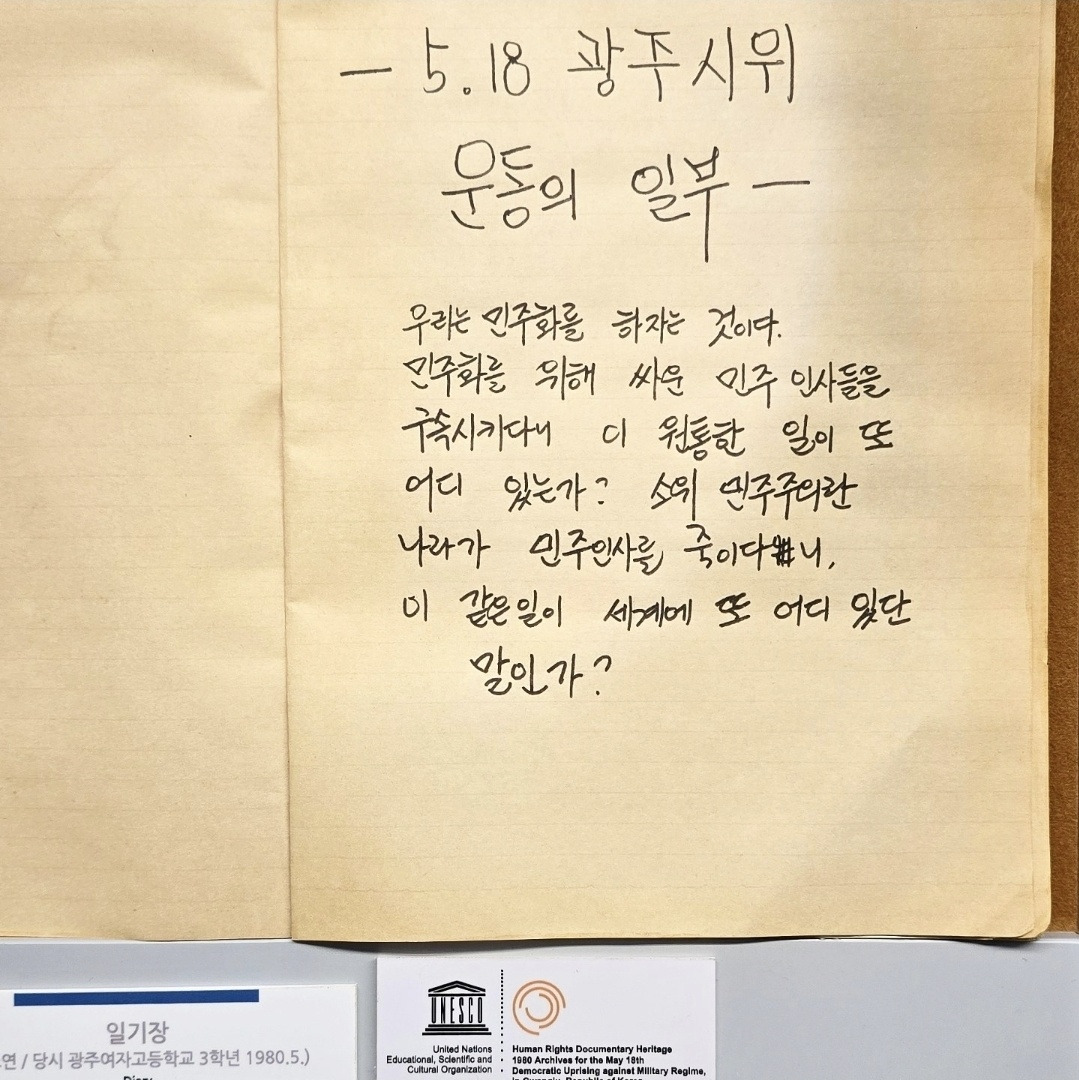 - 5.18 광주시위
운동의 일부 -
우리는 민주화를 하자는 것이다.
민주화를 위해 싸운 민주 인사들을
구속시키다니 이 원통한 일이 또
어디 있는가? 소위 민주주의란
나라가 민주인사를 죽이다니,
이 같은일이 세계에 또 어디 있단
말인가?
일기장
연 / 당시 광주여자고등학교 3학년 1980.5.)
Diary
UNESCO
United Nations
Educational, Scientific and
Cultural Organization
Human Rights Documentary Heritage
1980 Archives for the May 18th
Democratic Uprising against Military Regime,
in Gwangju, Republic of Korea